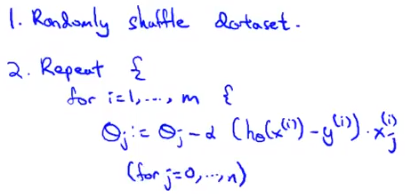 1. Randomly shuffle dataset.
2. Repeat {
for i=1,...,m {
θⱼ := θⱼ - α (h_θ(x⁽ⁱ⁾) - y⁽ⁱ⁾) · xⱼ⁽ⁱ⁾
(for j=0,...,n)